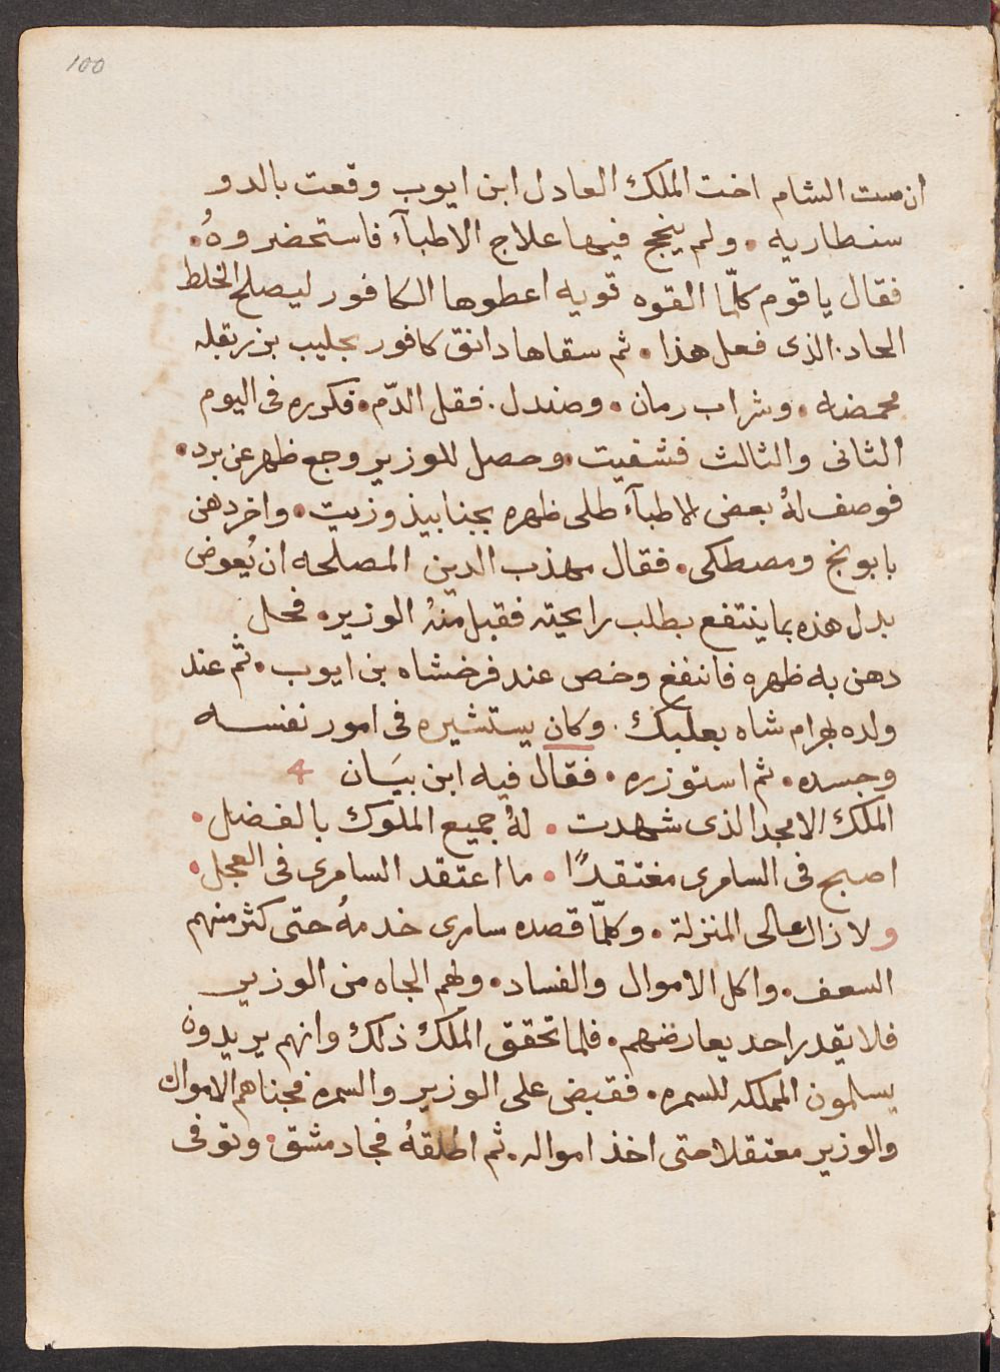 100
ان ست الشام اخت الملك العادل ابن ايوب وقعت بالدو
سنطاريه . ولم ينجح فيها علاج الاطبآء فاستحضروهُ.
فقال يا قوم كلّما القوه قويه اعطوها الكافور ليصلح الخلط
الحاد. الذى فعل هذا . ثم سقاها دانق كافور بحليب بزر بقله
محمضه . وشراب رمان . وصندل . فقل الدّم . فكرره فى اليوم
الثانى والثالث فشفيت . وحصل للوزير وجع ظهر عن برد .
فوصف لهُ بعض الاطبآء طلى ظهره بجنابيذ وزيت . واخر دهن
بابونج ومصطكى . فقال مهذب الدين المصلحه ان يُعوض
بدل هذه بما ينتفع بطلب رايحته فقبل منهُ الوزير . فحل
دهن به ظهره فانتفع وخص عند فرخشاه بن ايوب . ثم عند
ولده بهرام شاه بعلبك . وكان يستشيره فى امور نفسه
وجسده . ثم استوزره . فقال فيه ابن بيَسان 4
الملك الامجد الذى شهدت . لهُ جميع الملوك بالفضل .
اصبح فى السامرى مغتقدًا . ما اعتقد السامرى فى العجل .
ولا زال عالى المنزلة . وكلّما قصده سامرى خدمهُ حتى كثر منهم
السعف . واكل الاموال والفساد . ولهم الجاه من الوزير
فلا يقدر احد يعارضهم . فلما تحقق الملك ذلك وانهم يريدون
يسلمون المملكه للسمره . فقبض على الوزير والسمره فجناهم الاموال
والوزير معتقلا حتى اخذ امواله . ثم اطلقهُ فجا دمشق . وتوفى